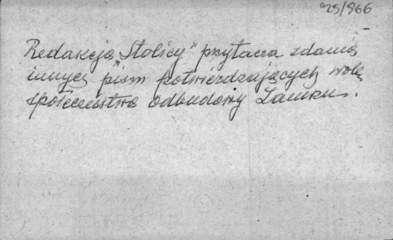 25/966
Redakcja „Stolicy" przytacza zdania
innych pism potwierdzających wolę
społeczeństwa odbudowy Zamku.